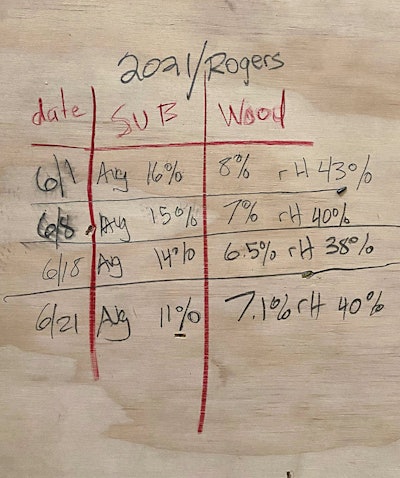 2021/Rogers
date SUB Wood
6/1 Avg 16% 8% rH 43%
6/8 Avg 15% 7% rH 40%
6/18 Avg 14% 6.5% rH 38%
6/21 Avg 11% 7.1% rH 40%